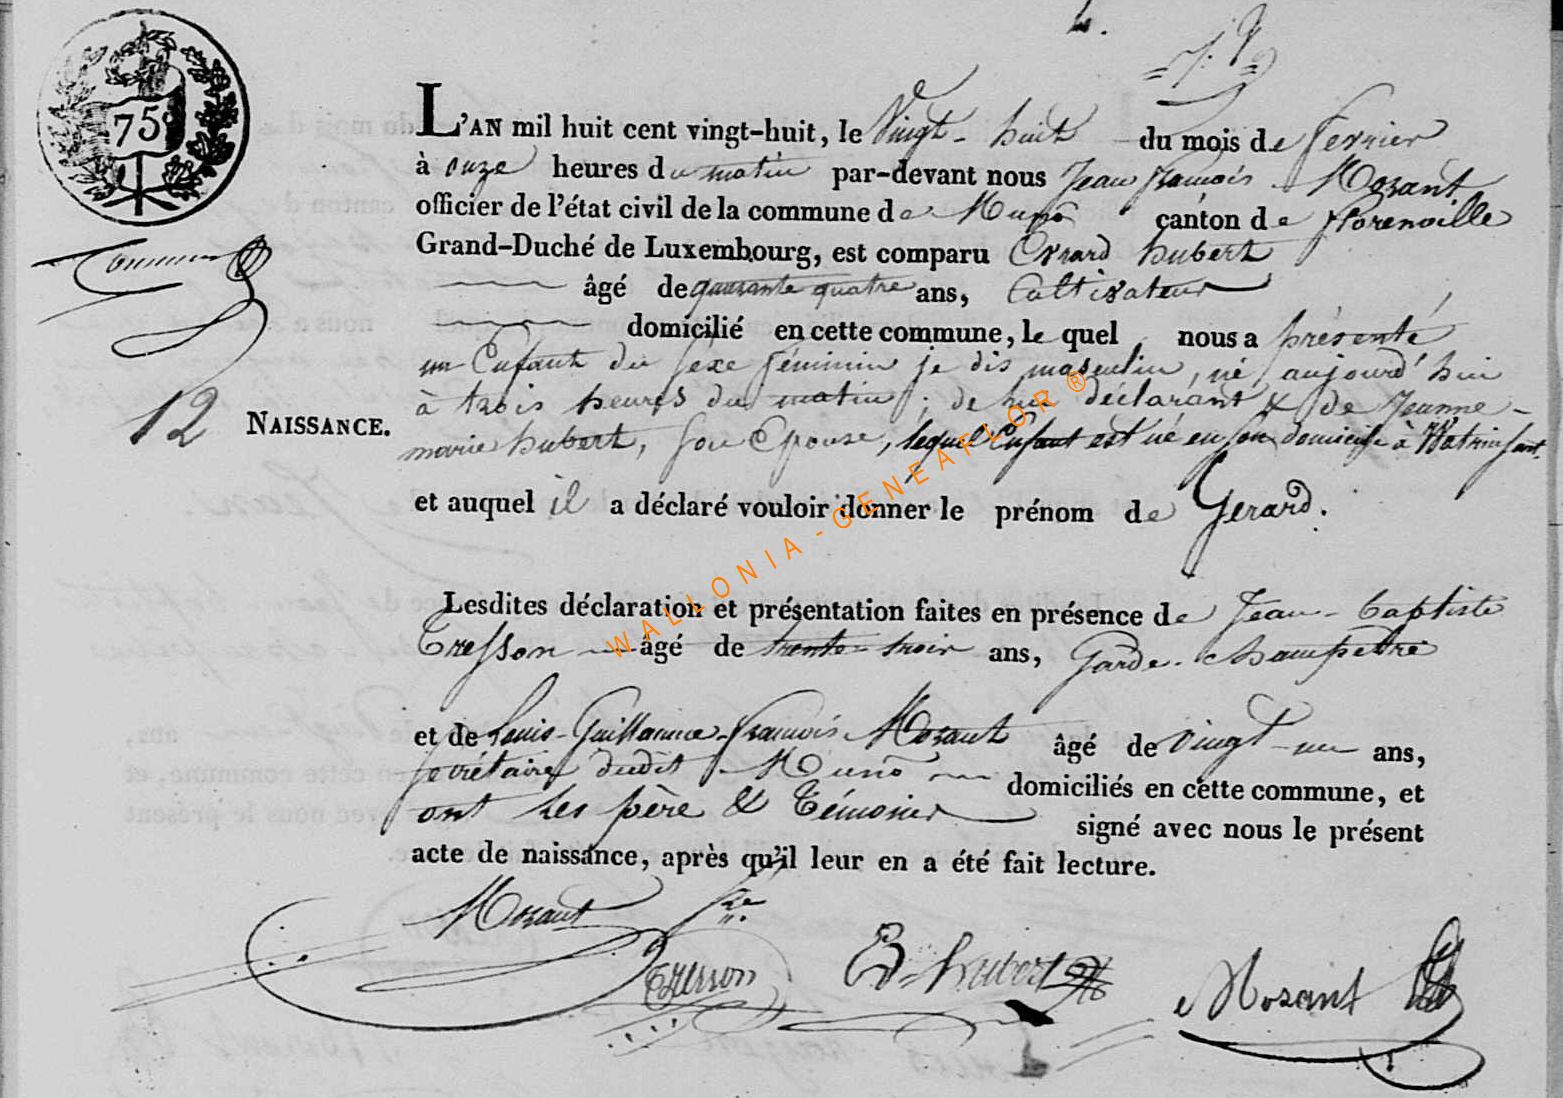 75
L'AN mil huit cent vingt-huit, le Vingt-huit du mois de fevrier
à onze heures du matin par-devant nous Jean françois Mozant
officier de l'état civil de la commune de Muno canton de florenville
Grand-Duché de Luxembourg, est comparu Evrard hubert
âgé de quarante quatre ans, Cultivateur
domicilié en cette commune, le quel nous a présenté
un Enfant du sexe féminin je dis masculin, né aujourd'hui
à trois heures du matin; de lui déclarant & de Jeanne-
12 NAISSANCE.
marie hubert, son Epouse, lequel Enfant est né en son domicile à Watrinsart
et auquel il a déclaré vouloir donner le prénom de Gerard.
Lesdites déclaration et présentation faites en présence de Jean-baptiste
Tresson âgé de trente-trois ans, Garde-champetre
et de Louis-Guillaume-françois Mozant âgé de vingt-un ans,
secrétaire dudit Muno domiciliés en cette commune, et
ont les père & témoins signé avec nous le présent
acte de naissance, après qu'il leur en a été fait lecture.
Mozant
Tresson
E hubert
Mozant
WALLONIA-GENEAFLOR®